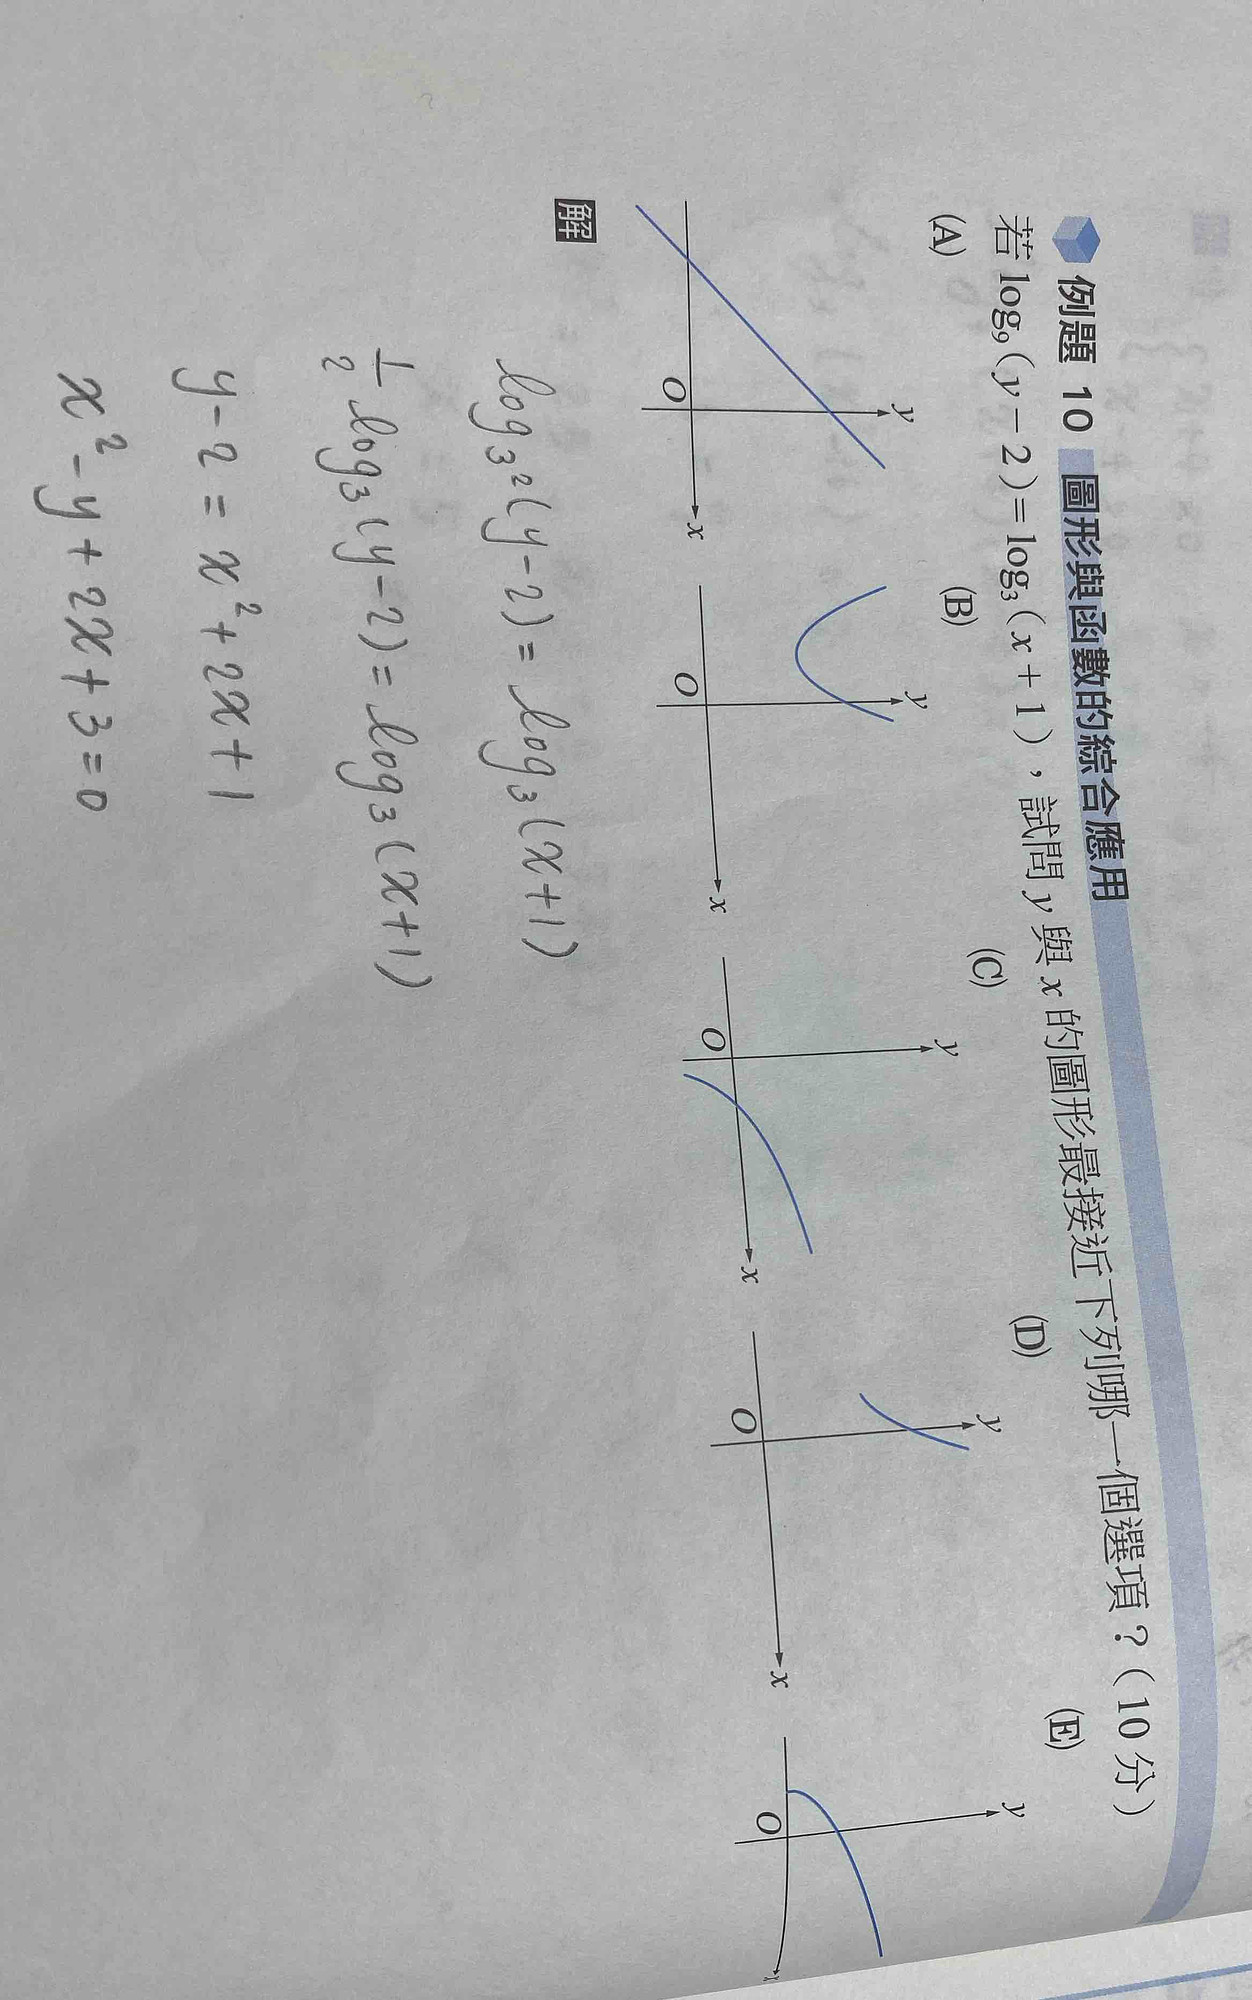 例題 10 圖形與函數的綜合應用
若 log₉(y－2)＝log₃(x＋1)，試問 y 與 x 的圖形最接近下列哪一個選項？(10 分)
(A) (B) (C) (D) (E)
y y y y y
O x O x O x O x O x
解
log₃²(y-2) = log₃(x+1)
1/2 log₃(y-2) = log₃(x+1)
y-2 = x²+2x+1
x²-y+2x+3=0